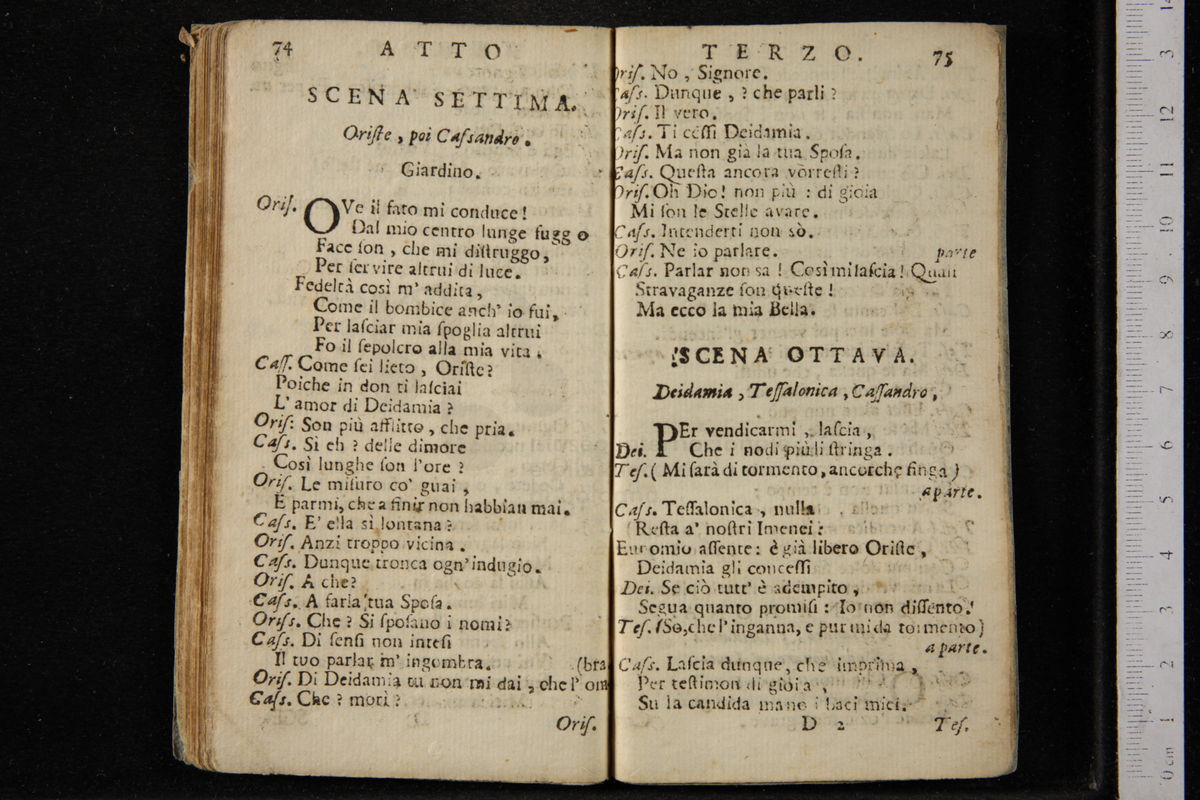 74 ATTO
SCENA SETTIMA.
Oriſte, poi Caſsandro.
Giardino.
Oriſ. OVe il fato mi conduce!
Dal mio centro lunge fuggo
Face ſon, che mi diſtruggo,
Per ſervire altrui di luce.
Fedeltà così m' addita,
Come il bombice anch' io fui,
Per laſciar mia ſpoglia altrui
Fo il ſepolcro alla mia vita.
Caſſ. Come ſei lieto, Oriſte?
Poiche in don ti laſciai
L' amor di Deidamia?
Oriſ: Son più afflitto, che pria.
Caſs. Sì eh? delle dimore
Così lunghe ſon l'ore?
Oriſ. Le miſuro co' guai,
E parmi, che a finir non habbian mai.
Caſs. E' ella sì lontana?
Oriſ. Anzi troppo vicina.
Caſs. Dunque tronca ogn' indugio.
Oriſ. A che?
Caſs. A farla tua Spoſa.
Oriſs. Che? Si ſpoſano i nomi?
Caſs. Di ſenſi non inteſi
Il tuo parlar m' ingombra. (bra
Oriſ. Di Deidamia tu non mi dai, che l' om
Caſs. Che? morì?
Oriſ.
TERZO. 75
Oriſ. No, Signore.
Caſs. Dunque,? che parli?
Oriſ. Il vero.
Caſs. Ti ceſſi Deidamia.
Oriſ. Ma non già la tua Spoſa.
Caſs. Queſta ancora vorreſti?
Oriſ. Oh Dio! non più: di gioia
Mi ſon le Stelle avare.
Caſs. Intenderti non sò.
Oriſ. Ne io parlare. parte
Caſs. Parlar non sa! Così mi laſcia! Quali
Stravaganze ſon queſte!
Ma ecco la mia Bella.
SCENA OTTAVA.
Deidamia, Teſſalonica, Caſſandro,
Dei. PEr vendicarmi, laſcia,
Che i nodi più li ſtringa.
Teſ. (Mi ſarà di tormento, ancorche finga)
a parte.
Caſs. Teſſalonica, nulla
Reſta a' noſtri Imenei:
Euromio aſſente: è già libero Oriſte,
Deidamia gli conceſſi
Dei. Se ciò tutt' è adempito,
Segua quanto promiſi: Io non diſſento.
Teſ. (So, che l'inganna, e pur mi da tormento)
a parte.
Caſs. Laſcia dunque, che imprima,
Per teſtimon di gioia,
Su la candida mano i baci miei.
D 2 Teſ.